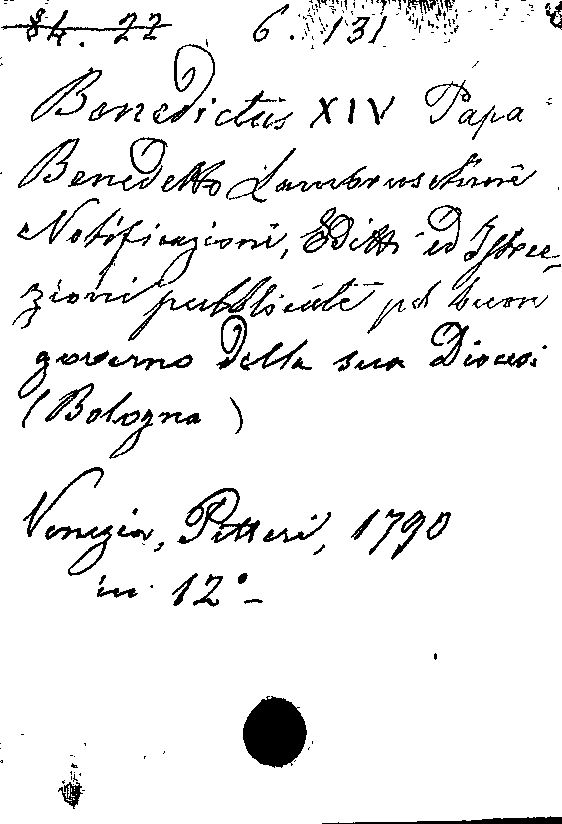 84. 22 6. 131
Benedictus XIV Papa
Benedetto Lambruschini
Notificazioni, Editti ed Istru-
zioni pubblicate pel buon
governo della sua Diocesi
(Bologna)
Venezia, Pitteri, 1790
in 12°-